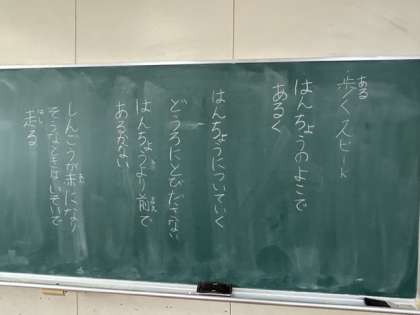 歩くスピード
ある
はんちょうのよこで
あるく
はんちょうについていく
どうろにとびださない
はんちょうより前で
あるかない
しんごうが赤になり
そうなときはいそいで
走る
はし